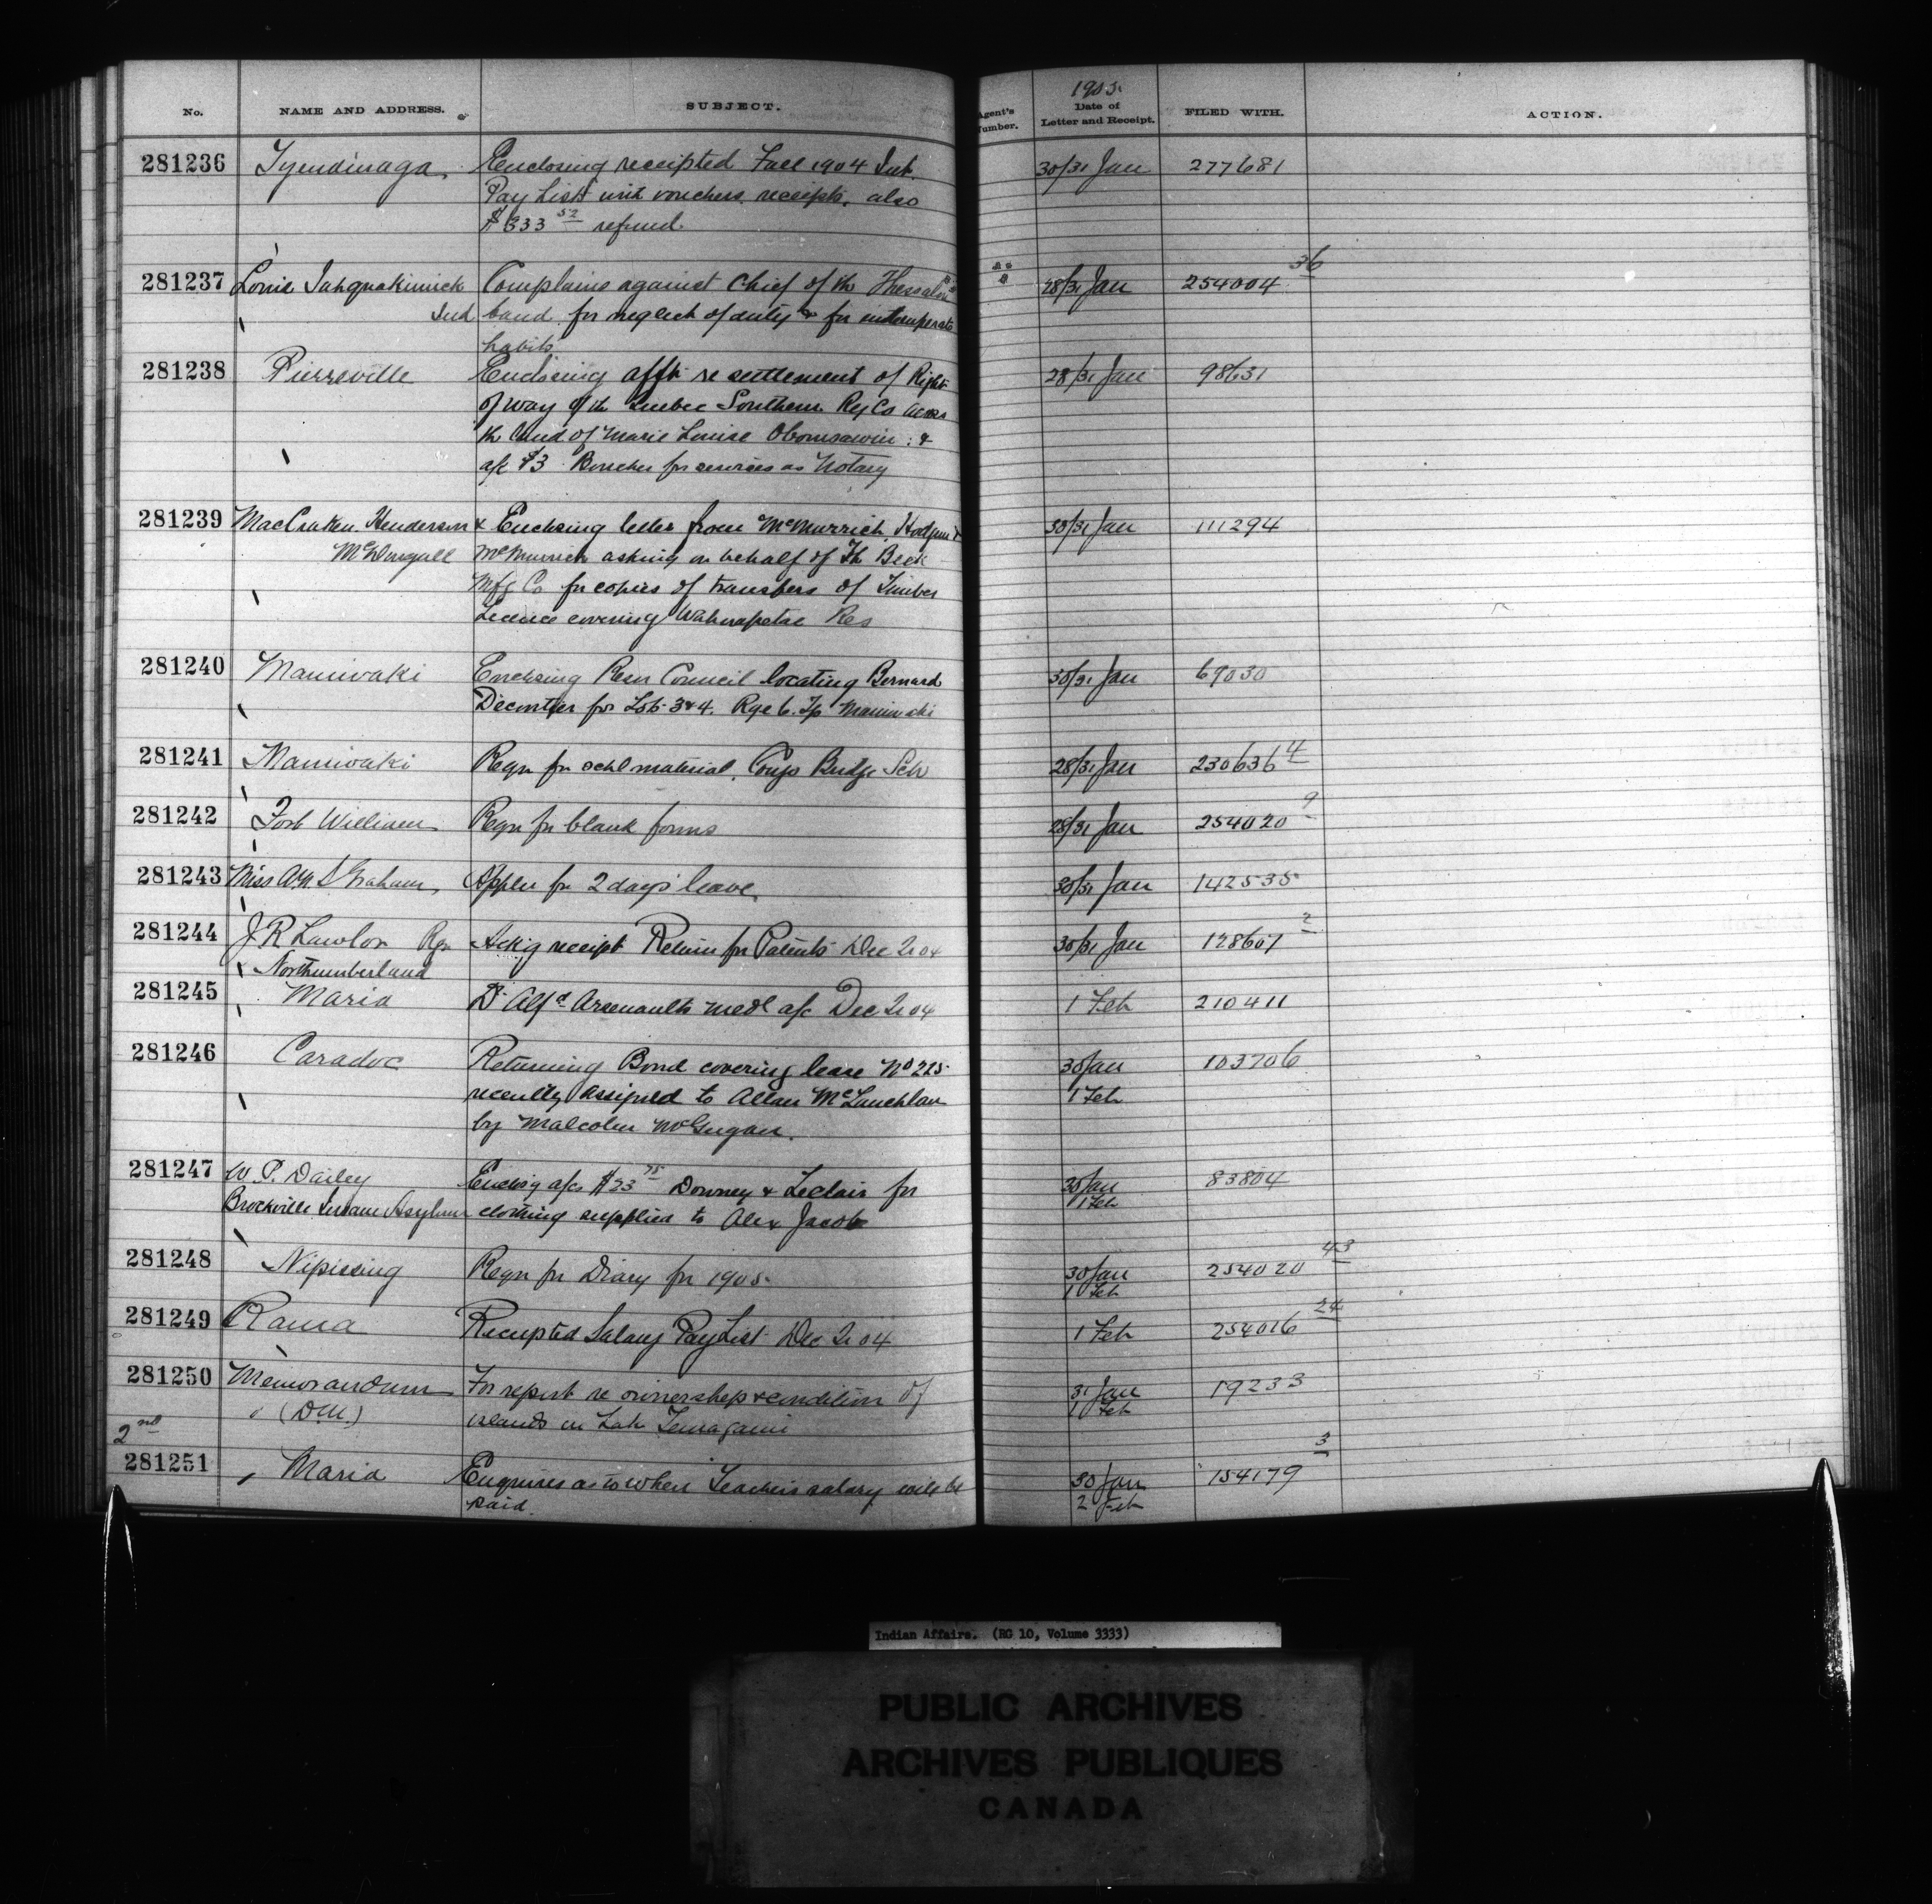 No. NAME AND ADDRESS. SUBJECT. Agent's Number. 1905 Date of Letter and Receipt. FILED WITH. ACTION.
281236 Tyendinaga. Enclosing receipted Fall 1904 Int. 30/31 Jan 277681
Pay Lists with vouchers receipts, also
$333 52 refund
281237 Ind Complains against Chief of the Thessalon 28/31 Jan 254004 36
band for neglect of duty & for intemperate
habits
281238 Pierreville Enclosing afft re settlement of Right 28/31 Jan 98631
of way of the Quebec Southern Ry Co across
the land of Marie Louise Obomsawin : &
a/c $3 Boucher for services as Notary
281239 MacCraken Henderson & Enclosing letter from McMurrich, Hodgins & 30/31 Jan 111294
McDougall McMurrich asking on behalf of Th Beck
Mfg Co for copies of transfers of Timber
Licence covering Wahnapetae Res
281240 Maniwaki Enclosing Resn Council locating Bernard 30/31 Jan 69030
Decontier for Lots 3 & 4. Rge 6. Tp Maniwaki
281241 Maniwaki Reqn for schl material. Congo Bridge Sch 28/31 Jan 230636 4
281242 Fort William Reqn for blank forms 28/31 Jan 254020 9
281243 Miss Graham, Appln for 2 days' leave. 30/31 Jan 142535
281244 J R Lawlor Rgr Ackg receipt Return for Patents Dec 2r 04 30/31 Jan 128607 2
Northumberland
281245 Maria Dr Alfd Arsenaults medl a/c Dec 2r 04 1 Feb 210411
281246 Caradoc Returning Bond covering lease No 225 30 Jan 103706
recently assigned to Allan McLauchlan 1 Feb
by Malcolm McGugan.
281247 W. P. Dailey Enclosg a/cs $23 75 Downey & Leclair for 30 Jan 83804
Brockville Insane Asylum clothing supplied to Alex Jacobs 1 Feb
281248 Nipissing Reqn for Diary for 1905. 30 Jan 254020 43
1 Feb
281249 Rama Receipted Salary Pay List Dec 2r 04 1 Feb 254016 24
281250 Memorandum For report re ownership & condition of 31 Jan 19233
(D.M.) islands in Lake Temagami 1 Feb
2nd
281251 Maria Enquires as to when Teachers salary will be 30 Jan 154179 3
paid. 2 Feb
Indian Affairs. (RG 10, Volume 3333)
PUBLIC ARCHIVES
ARCHIVES PUBLIQUES
CANADA